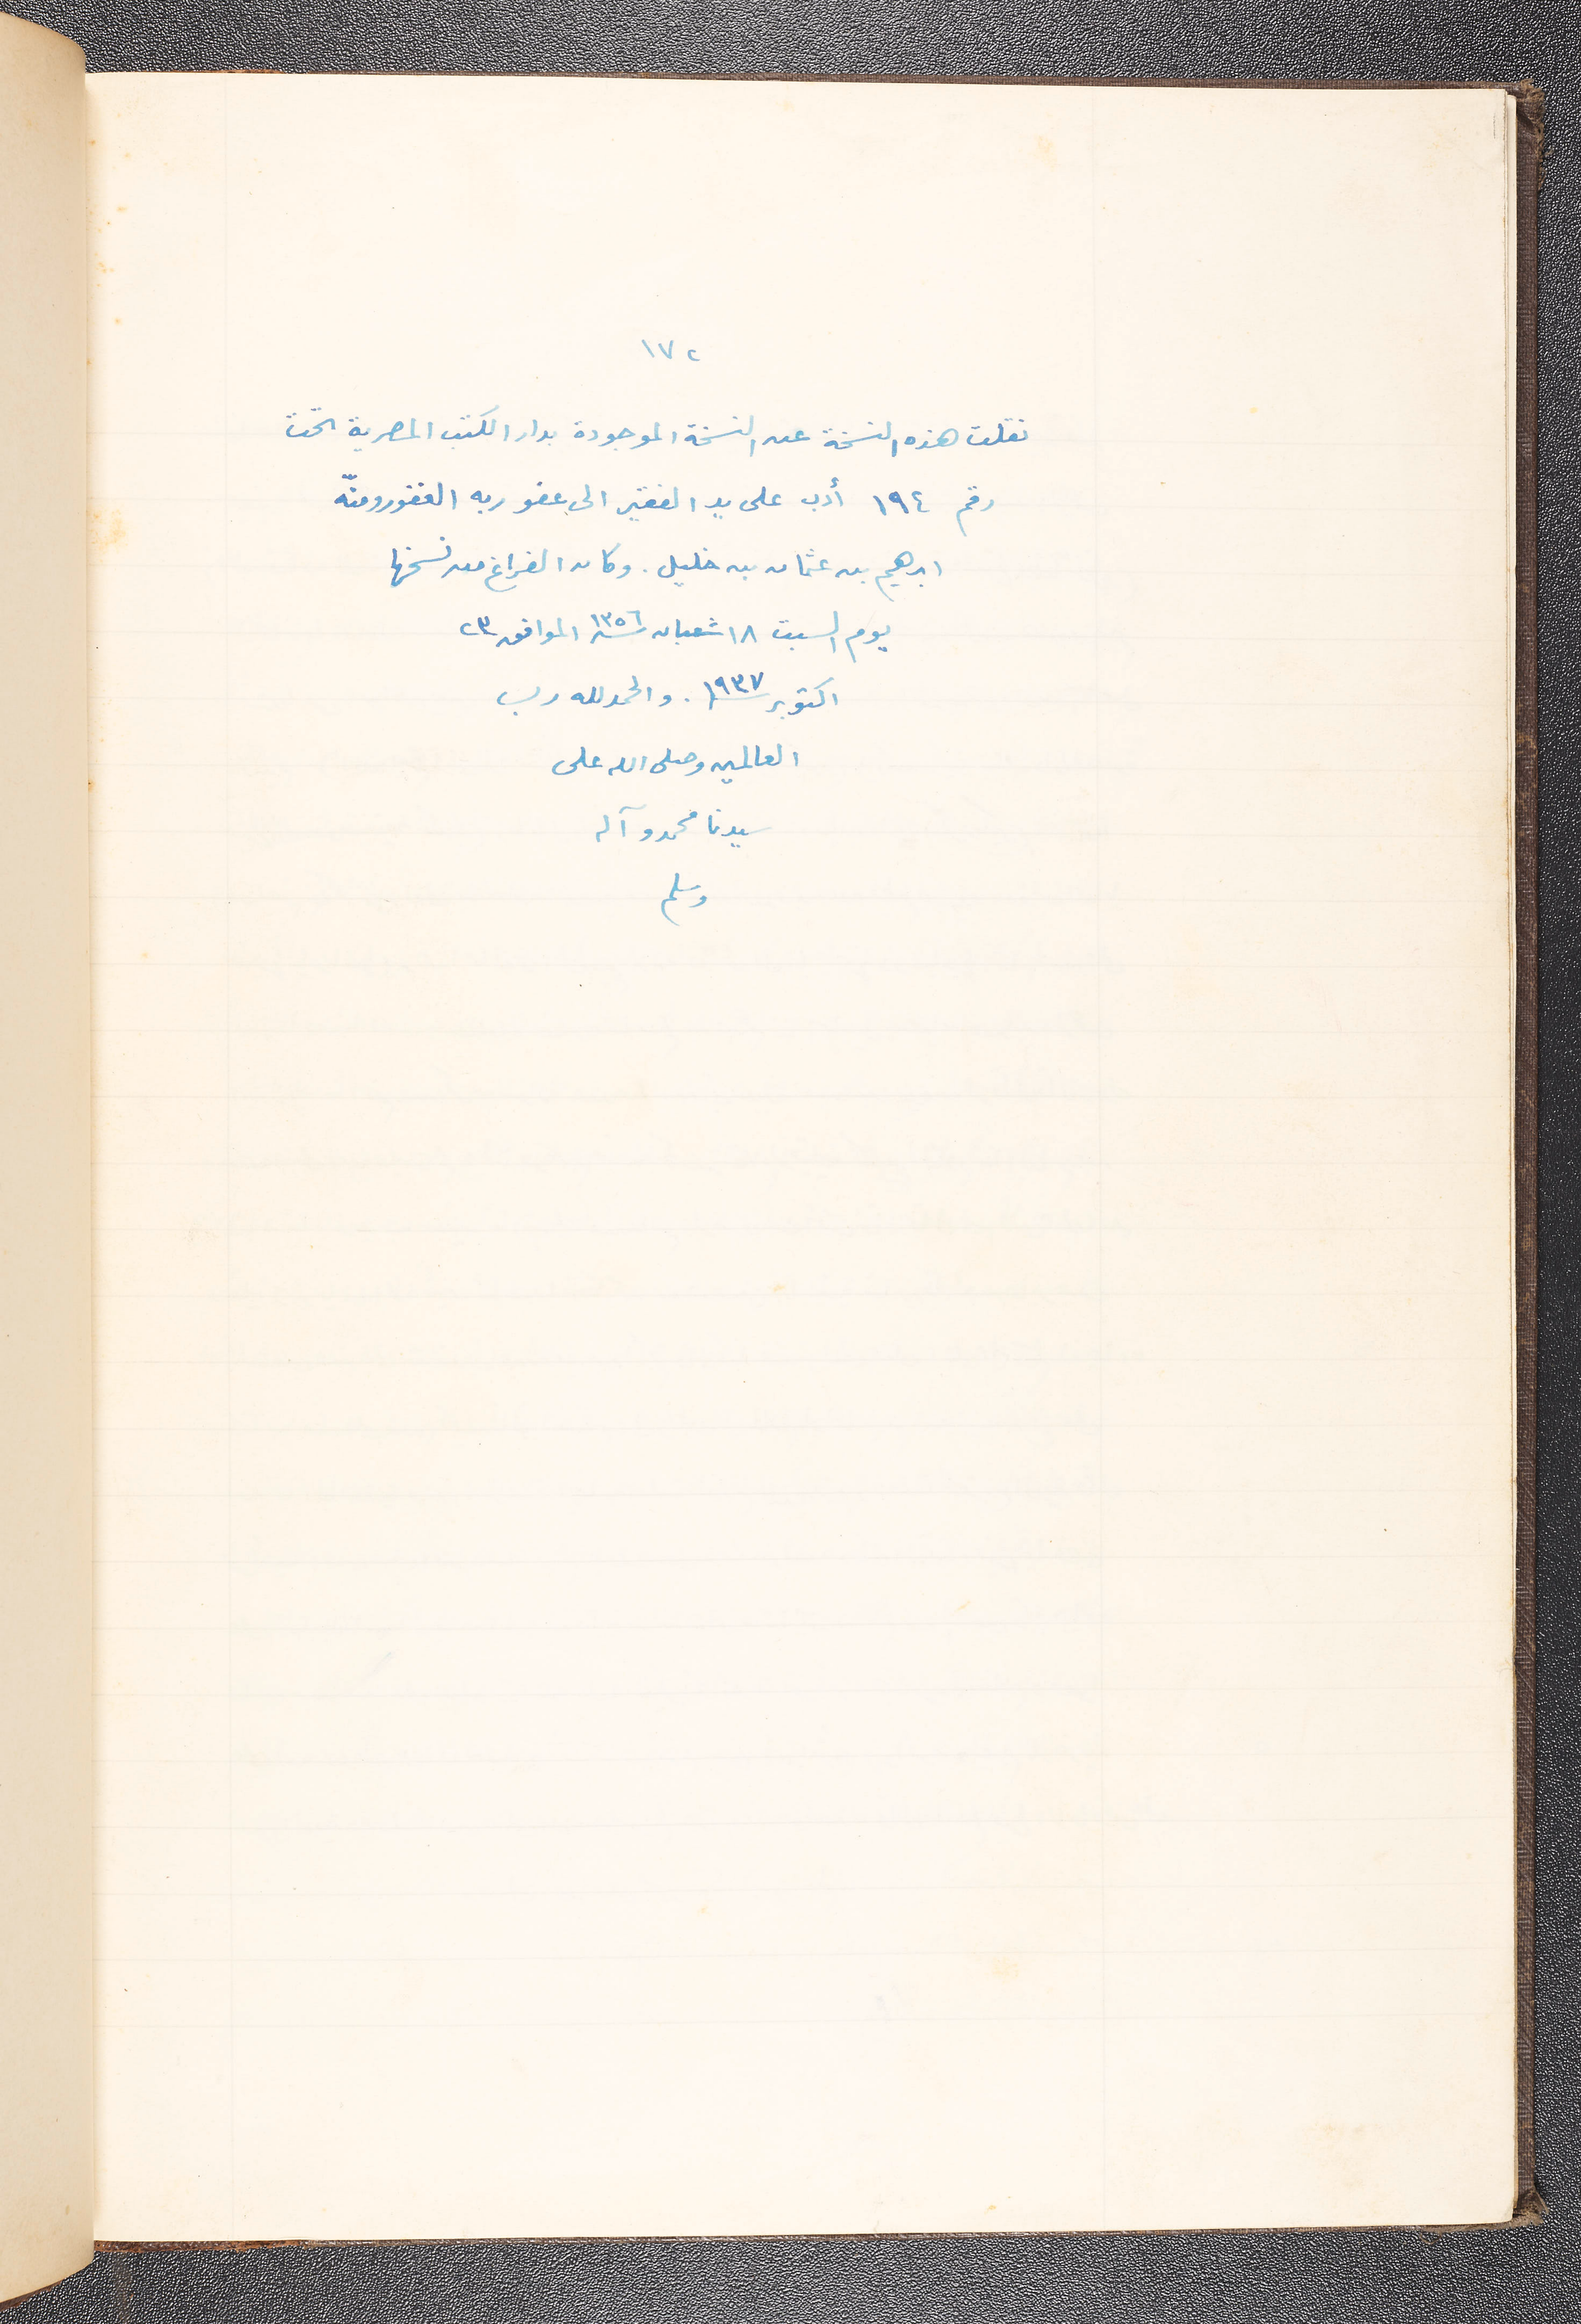 ١٧٢
نقلت هذه النسخة عن النسخة الموجودة بدار الكتب المصرية تحت
رقم ١٩٤ أدب على يد الفقير الى عفو ربه الغفور ومنّه
ابرهيم بن عثمان بن خليل . وكان الفراغ من نسخها
يوم السبت ١٨ شعبان سنة ١٣٥٦ الموافق ٢٣
اكتوبر سنة ١٩٣٧ . والحمد لله رب
العالمين وصلى الله على
سيدنا محمد وآله
وسلم